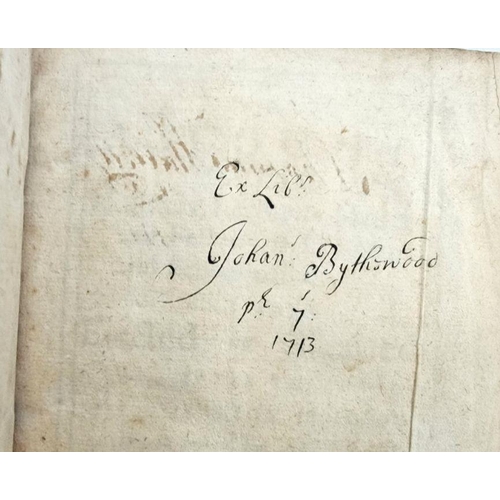 Ex Libs.
Johan: Bythswood
pr: 7:
1713